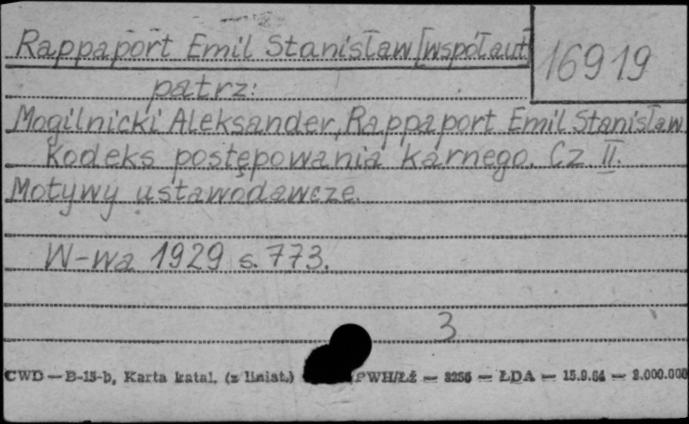 Rappaport Emil Stanisław [współaut
16919
patrz:
Mogilnicki Aleksander, Rappaport Emil Stanisław
Kodeks postępowania karnego. Cz II.
Motywy ustawodawcze.
W-wa 1929 s. 773.
3
CWD — B-15-b, Karta katal. (z liniat.) PWH/Łź — 3256 — ŁDA — 15.9.64 — 2.000.000